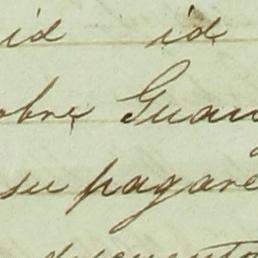 id id
obre Guan
su pagare
documento